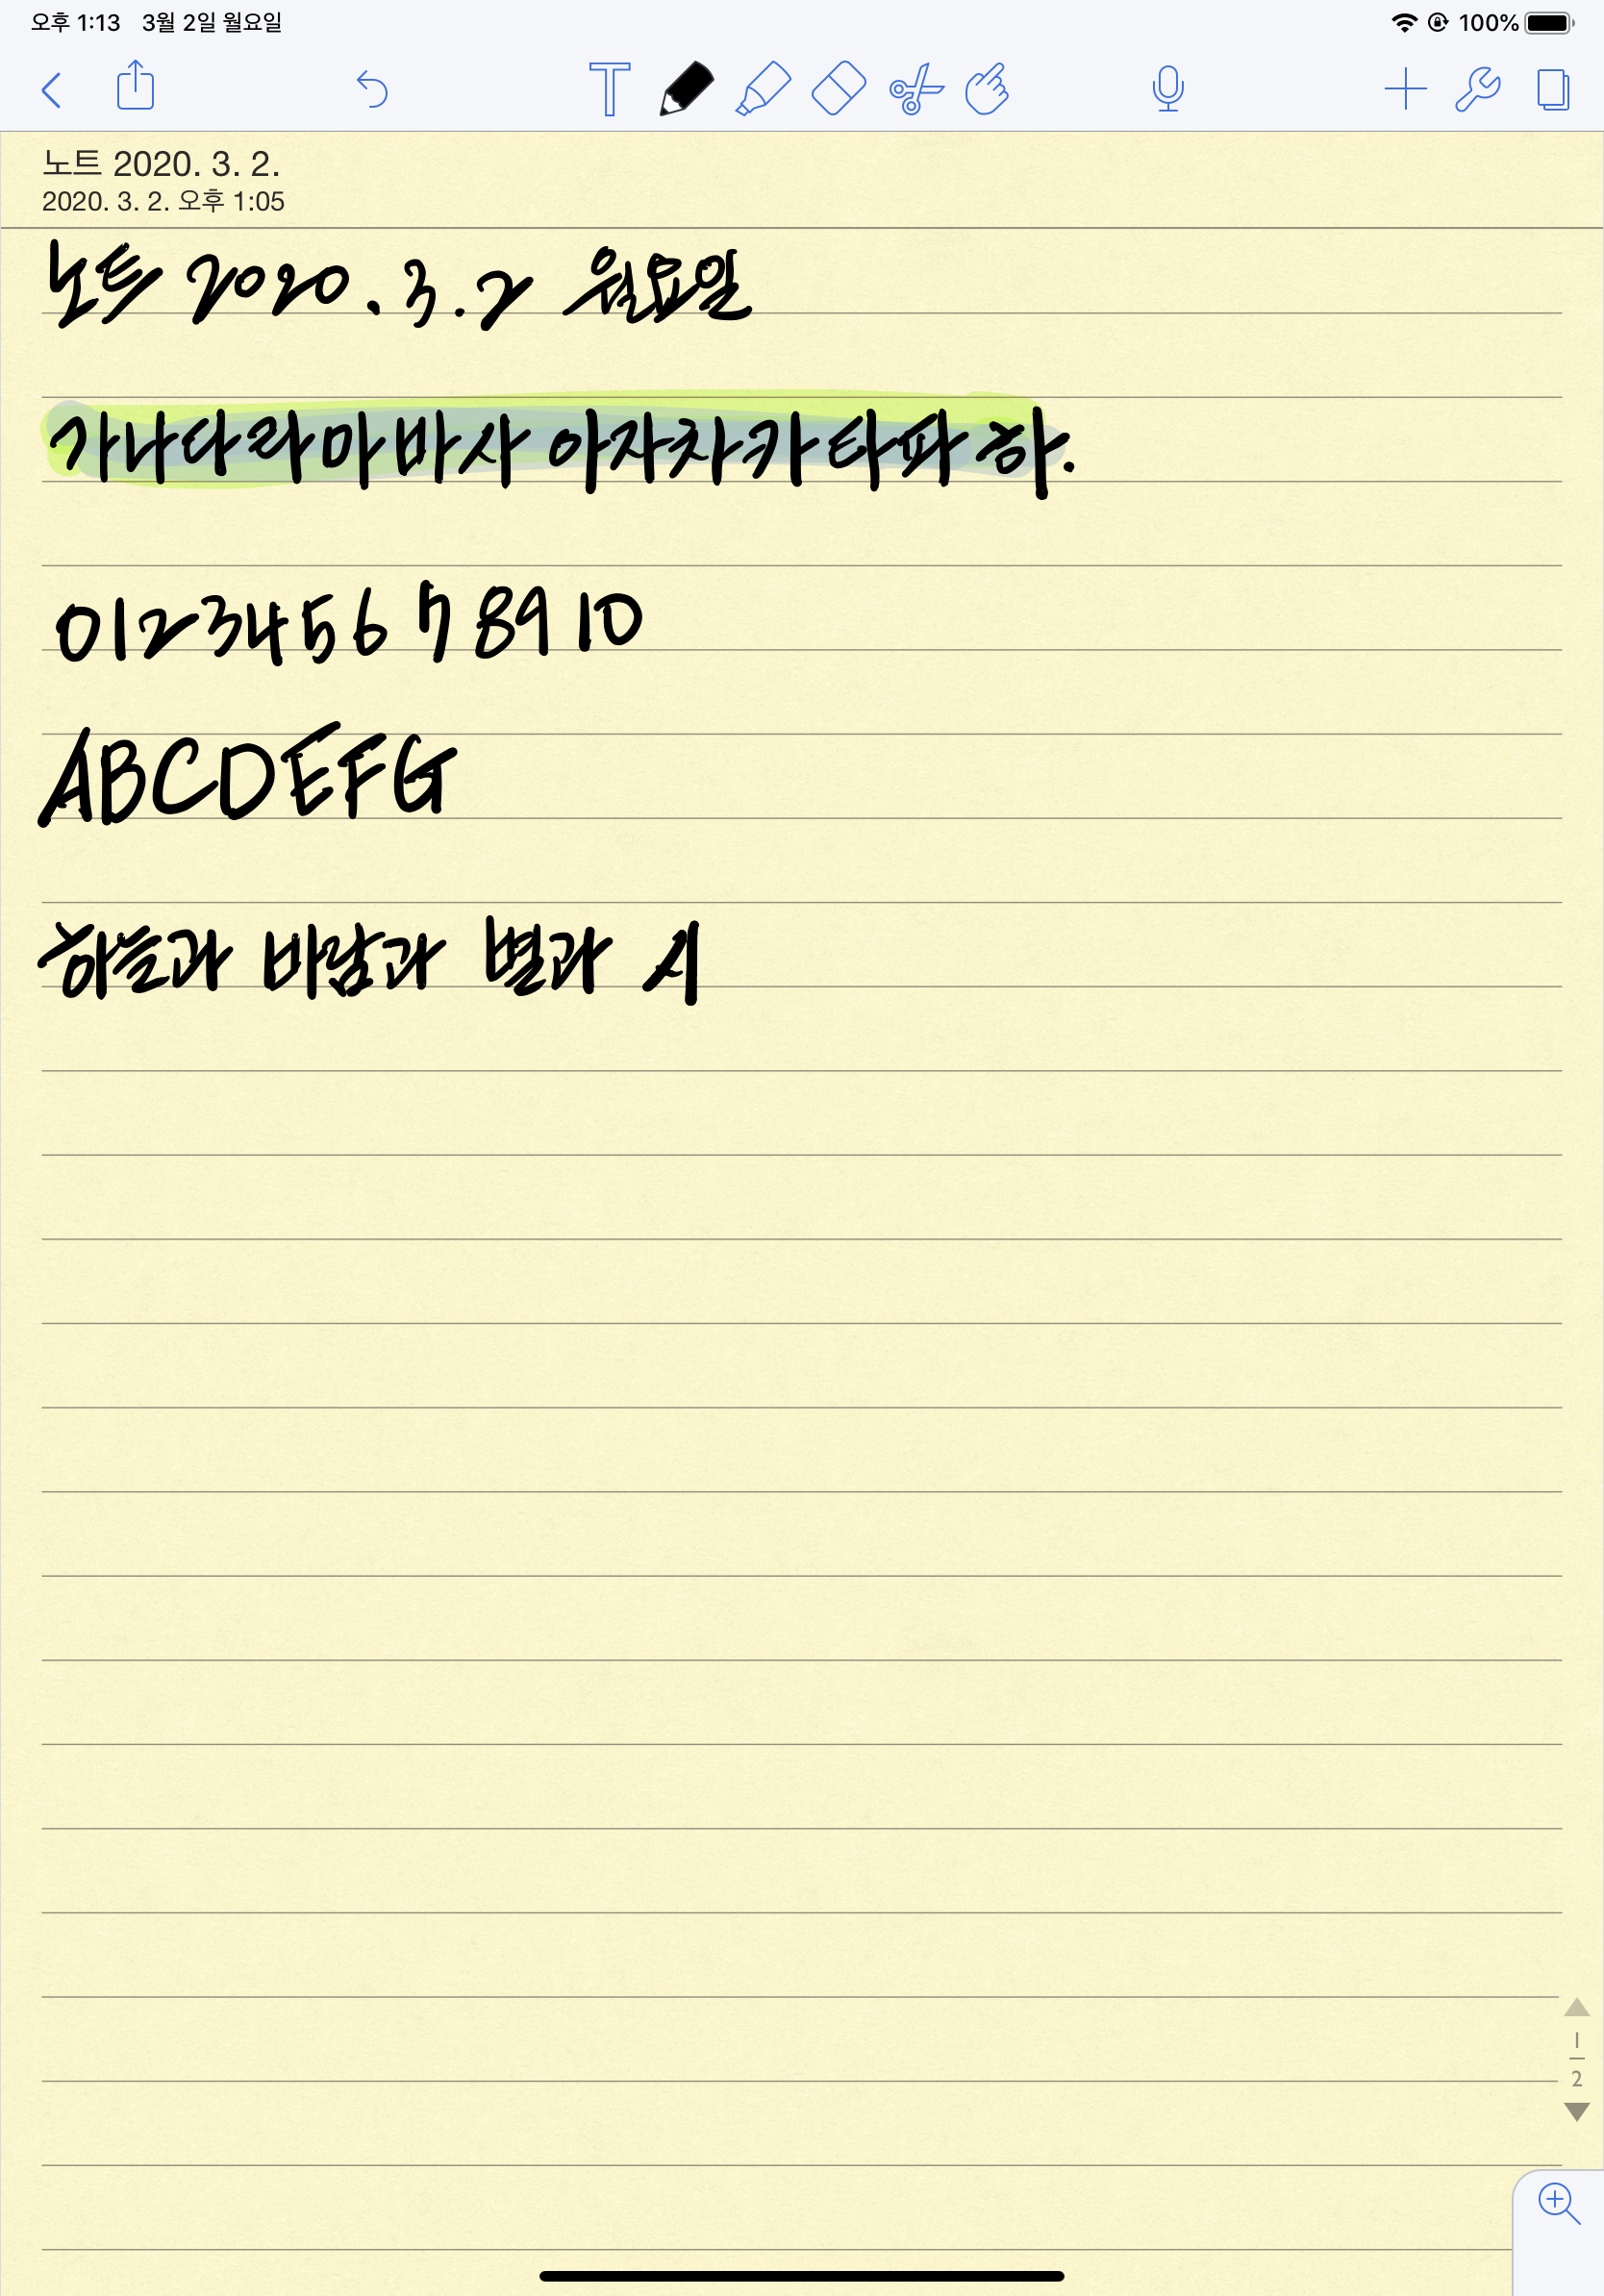 오후 1:13 3월 2일 월요일 100%
노트 2020. 3. 2.
2020. 3. 2. 오후 1:05
노트 2020. 3. 2 월요일
가나다라마바사 아자차카타파하.
012345678910
ABCDEFG
하늘과 바람과 별과 시
1
2